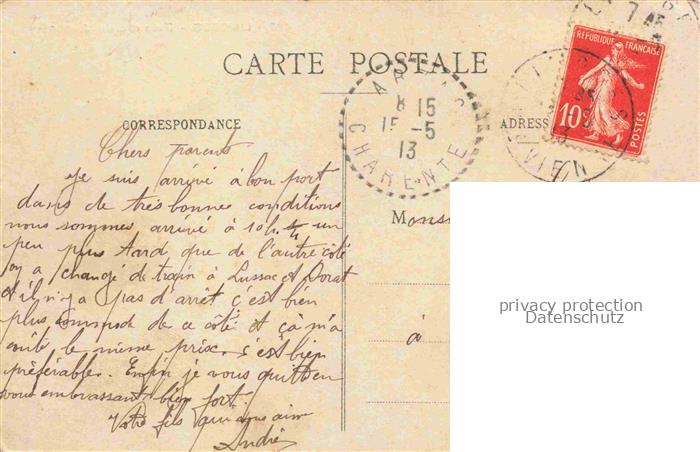 CARTE POSTALE
CORRESPONDANCE
ADRESSE
RÉPUBLIQUE FRANÇAISE
10c
POSTES
8 15
15-5
13
CHARENTE
VIEN
7
Chers parents
Je suis arrivé à bon port
dans de très bonne conditions
nous sommes arrivé à 10h. ¼ un
peu plus tard que de l'autre côté
on a changé de train à Lussac et Dorat
et il n'y a pas d'arrêt c'est bien
plus commode de ce côté et çà m'a
coûté le même prix. c'est bien
préférable. Enfin je vous quitte en
vous embrassant bien fort.
Votre fils qui vous aime
André
Monsi
à
privacy protection
Datenschutz